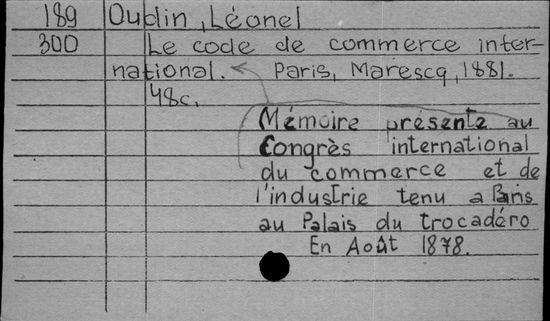 189 Oudin, Léonel
300 Le code de commerce inter-
national. Paris, Marescq, 1881.
48c.
Mémoire présente au
Congrès international
du commerce et de
l'industrie tenu a Paris
au Palais du trocadéro
En Août 1878.